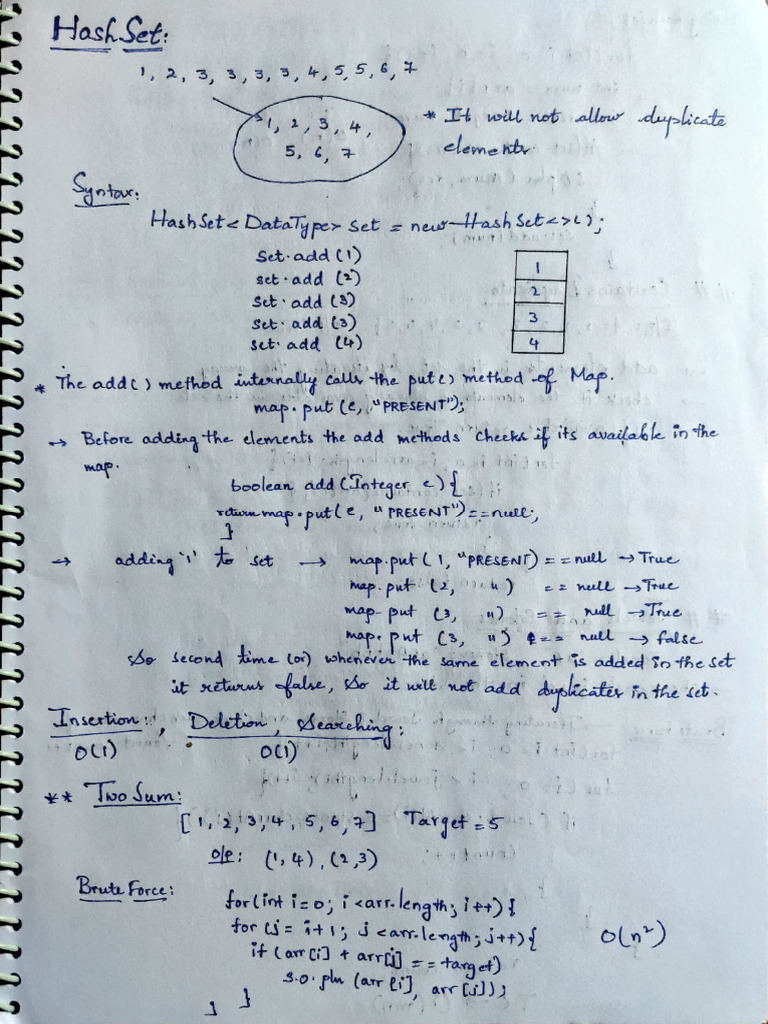 HashSet:
1, 2, 3, 3, 3, 3, 4, 5, 5, 6, 7
1, 2, 3, 4,
5, 6, 7
* It will not allow duplicate
elements
Syntax:
HashSet<DataType> set = new HashSet<>();
set.add(1)
set.add (2)
set.add (3)
set.add (3)
set.add (4)
1
2
3
4
* The add() method internally calls the put() method of Map.
map.put(e, "PRESENT");
→ Before adding the elements the add methods checks if its available in the
map.
boolean add(Integer e) {
return map.put(e, "PRESENT")==null;
}
→ adding '1' to set → map.put(1, "PRESENT) == null → True
map.put (2, ") == null → True
map.put (3, ") == null → True
map.put (3, ") == null → false
So second time (or) whenever the same element is added in the set
it returns false, So it will not add duplicates in the set.
Insertion:, Deletion, Searching:
O(1) O(1)
** Two Sum:
[1, 2, 3, 4, 5, 6, 7] Target = 5
o/p: (1,4), (2,3)
Brute Force:
for(int i=0; i<arr.length; i++) {
for (j = i+1; j<arr.length; j++) { O(n²)
if (arr[i] + arr[j] == target)
s.o.pln (arr[i], arr[j]);
} }